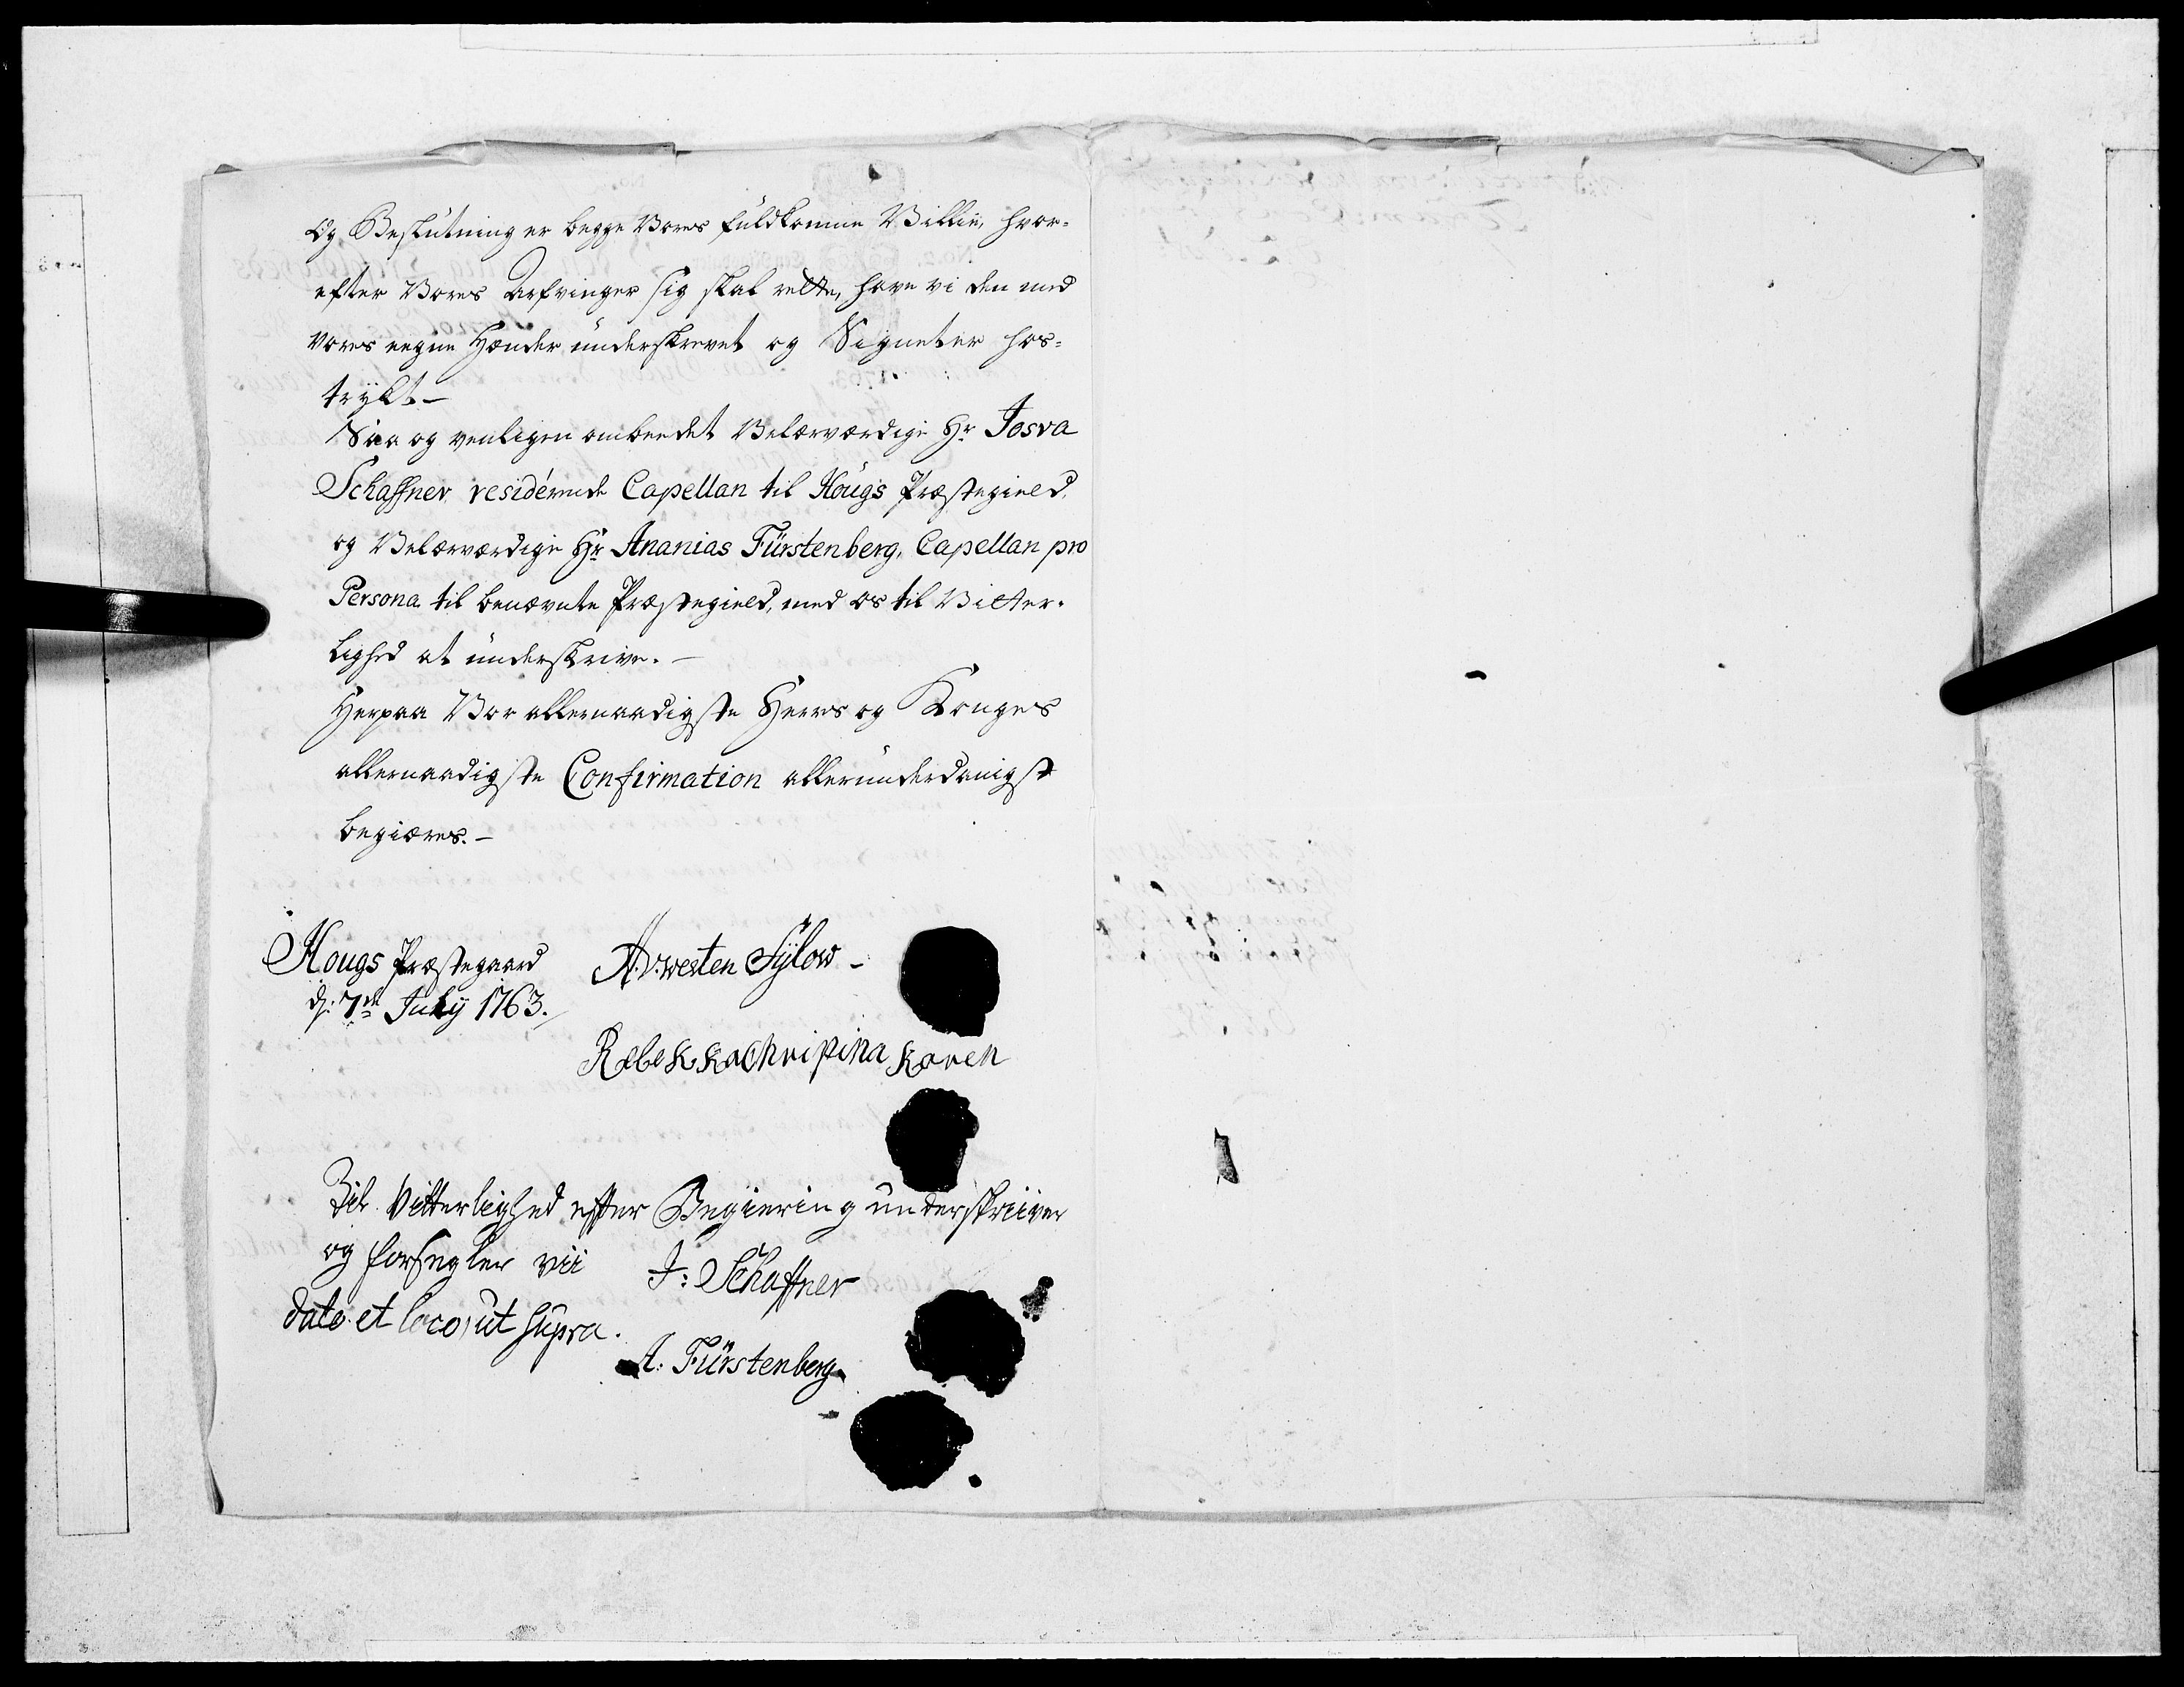 Og Beslutning er begge Vores fuldkomne Villie, hvor-
efter Vores Arfvinger sig skal rette, have vi den med
Vores eegne Hænder underskrevet og Signeter hos-
trykt –
Saa og venligen ombeedet Velærværdige Hr Josva
Schaffner residérende Capellan til Hougs Præstegield,
og Velærværdige Hr Ananias Fürstenberg, Capellan pro
Persona til benævnte Præstegield, med os til Vitter-
lighed at underskrive. –
Herpaa Vor allernaadigste Herres og Konges
allernaadigste Confirmation allerunderdanigst
begiæres. –
Hougs Præstegaard
d: 7de July 1763.
A. v. westen Sylow –
Rebekka Christina Koren
Til Vitterlighed efter Begiering underskriiver
og forsegler vii
dato et loco, ut supra.
J: Schaffner
A: Fürstenberg